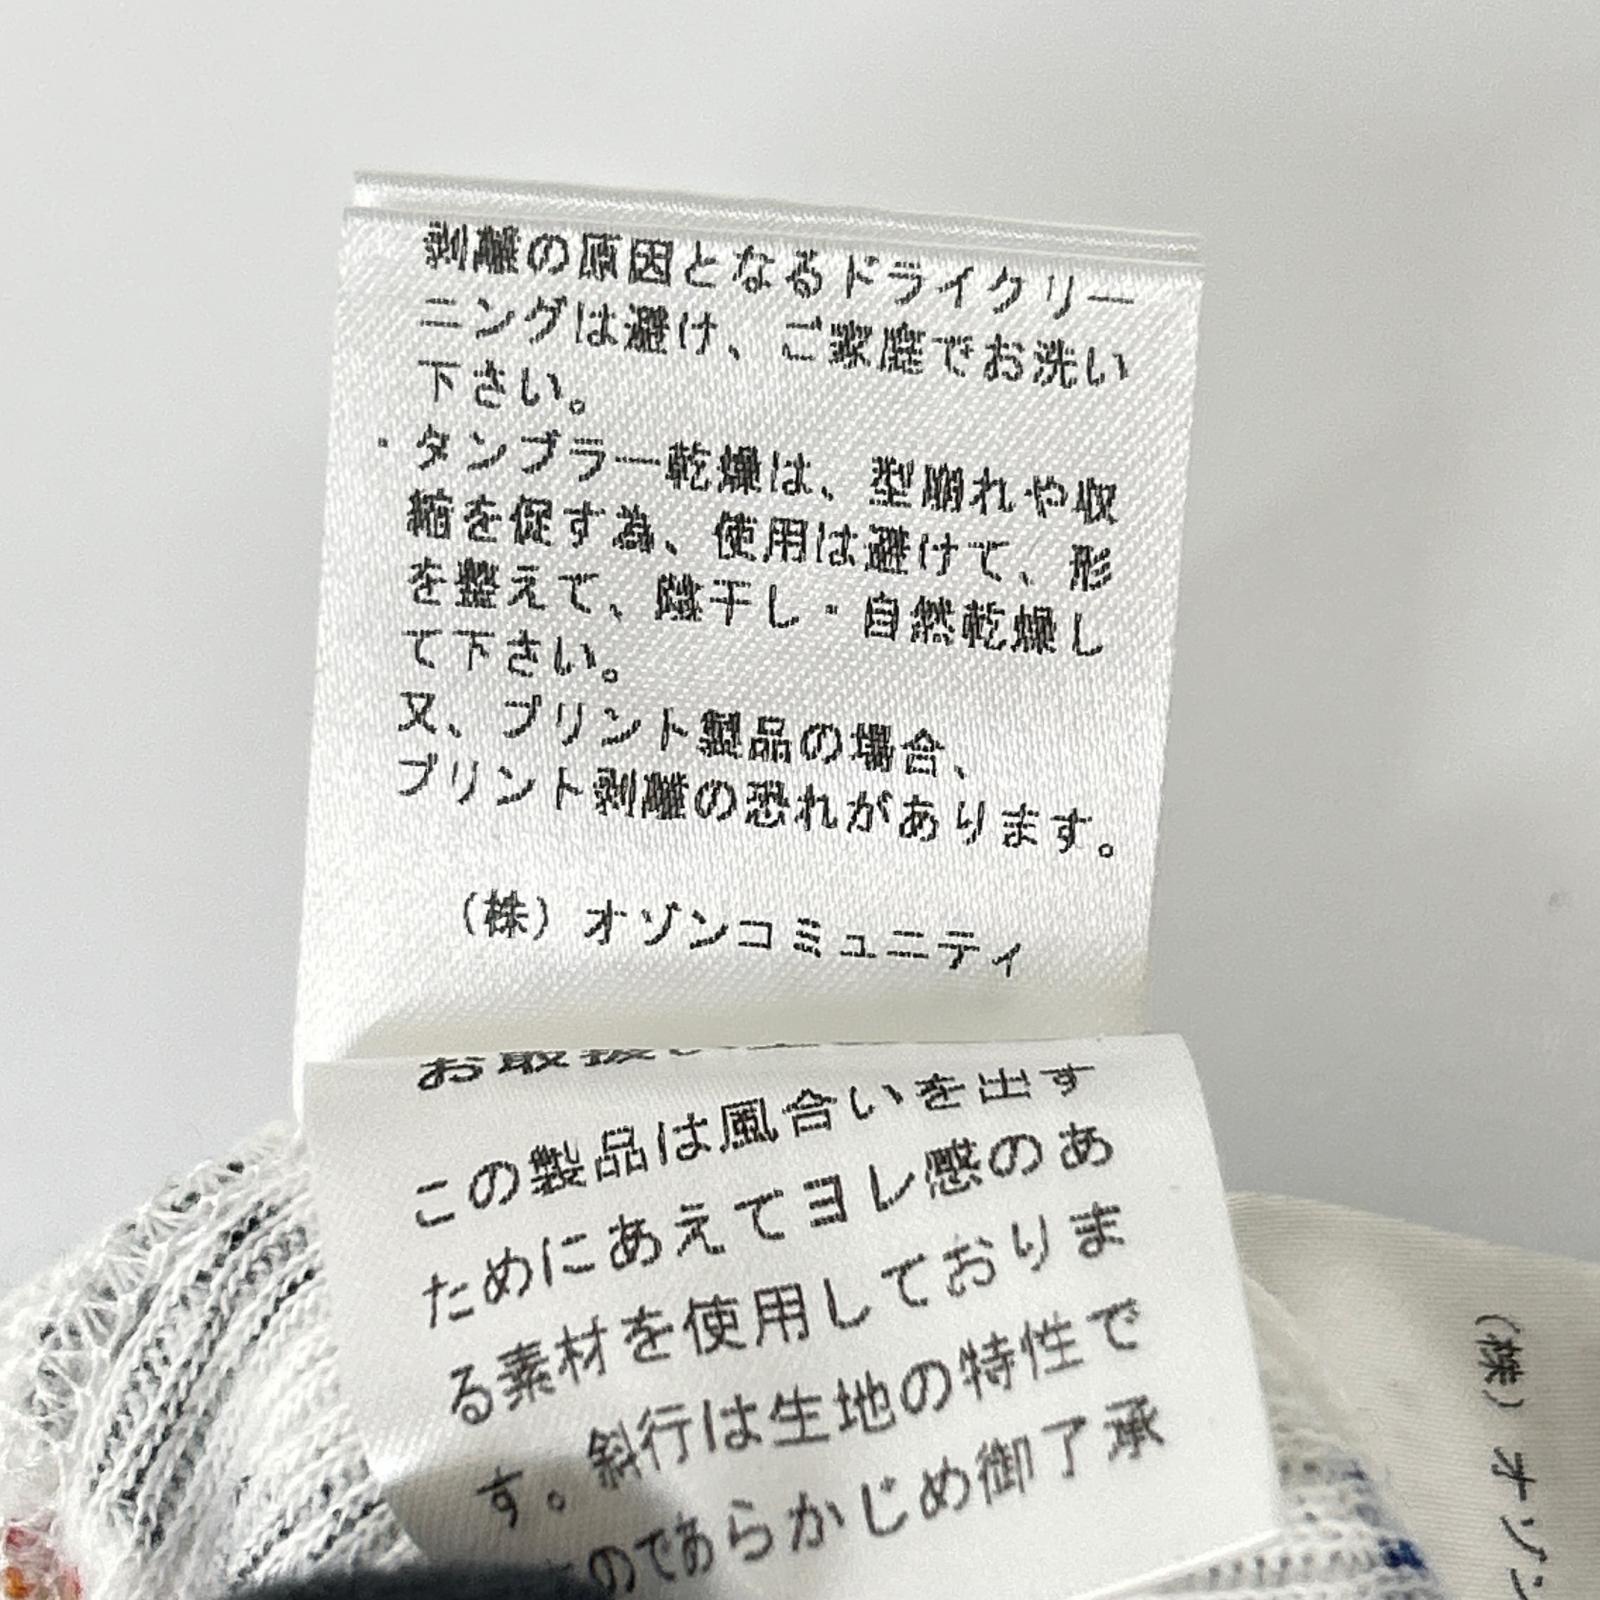 剥離の原因となるドライクリー
ニングは避け、ご家庭でお洗い
下さい。
・タンブラー乾燥は、型崩れや収
縮を促す為、使用は避けて、形
を整えて、陰干し・自然乾燥し
て下さい。
又、プリント製品の場合、
プリント剥離の恐れがあります。
(株)オゾンコミュニティ
お取扱い
この製品は風合いを出す
ためにあえてヨレ感のあ
る素材を使用しておりま
す。斜行は生地の特性で
のであらかじめ御了承
(株)オゾン